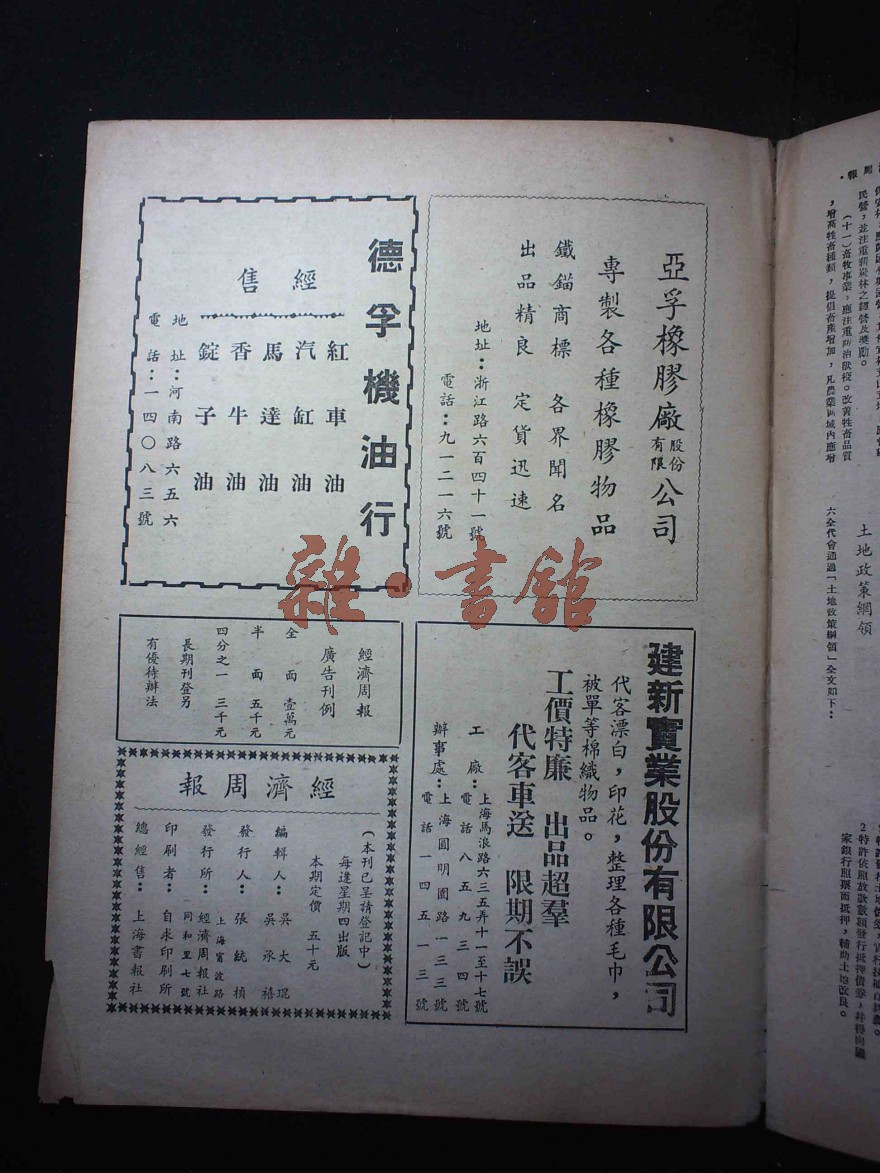 亞孚橡膠廠股份有限公司
專製各種橡膠物品
鐵錨商標 各界聞名
出品精良 定貨迅速
地址：浙江路六百四十一號
電話：九一二一六號
德孚機油行
經售
紅車油
汽缸油
馬達油
香牛油
錠子油
地址：河南路六五六
電話：一四〇八三號
建新實業股份有限公司
代客漂白，印花，整理各種毛巾，
被單等棉織物品。
工價特廉 出品超羣
代客車送 限期不誤
工廠：上海馬浪路六三五弄十一至十七號
電話八五九三四號
辦事處：上海圓明園路一三三號
電話一四五一三號
經濟周報
廣告刊例
全面 壹萬元
半面 五千元
四分之一 三千元
長期刊登另
有優待辦法
經濟周報
（本刊已呈請登記中）
每逢星期四出版
本期定價 五十元
編輯人：吳大琨
吳承禧
發行人：張統楨
發行所：經濟周報社
上海甯波路
同和里七號
印刷者：自求印刷所
總經售：上海書報社
雜·書舘
周報
民營，並注重薪炭林之經營及獎勵。
（十一）畜牧事業，應注重防治獸疫。改善牲畜品質
，增高牲畜種類，提倡畜產增加，凡農業區域內應增
土地政策綱領
六全代會通過「土地政策綱領」全文如下：
2特許依照放款數額發行抵押債券，并得向國
家銀行照票面抵押，輔助土地改良。